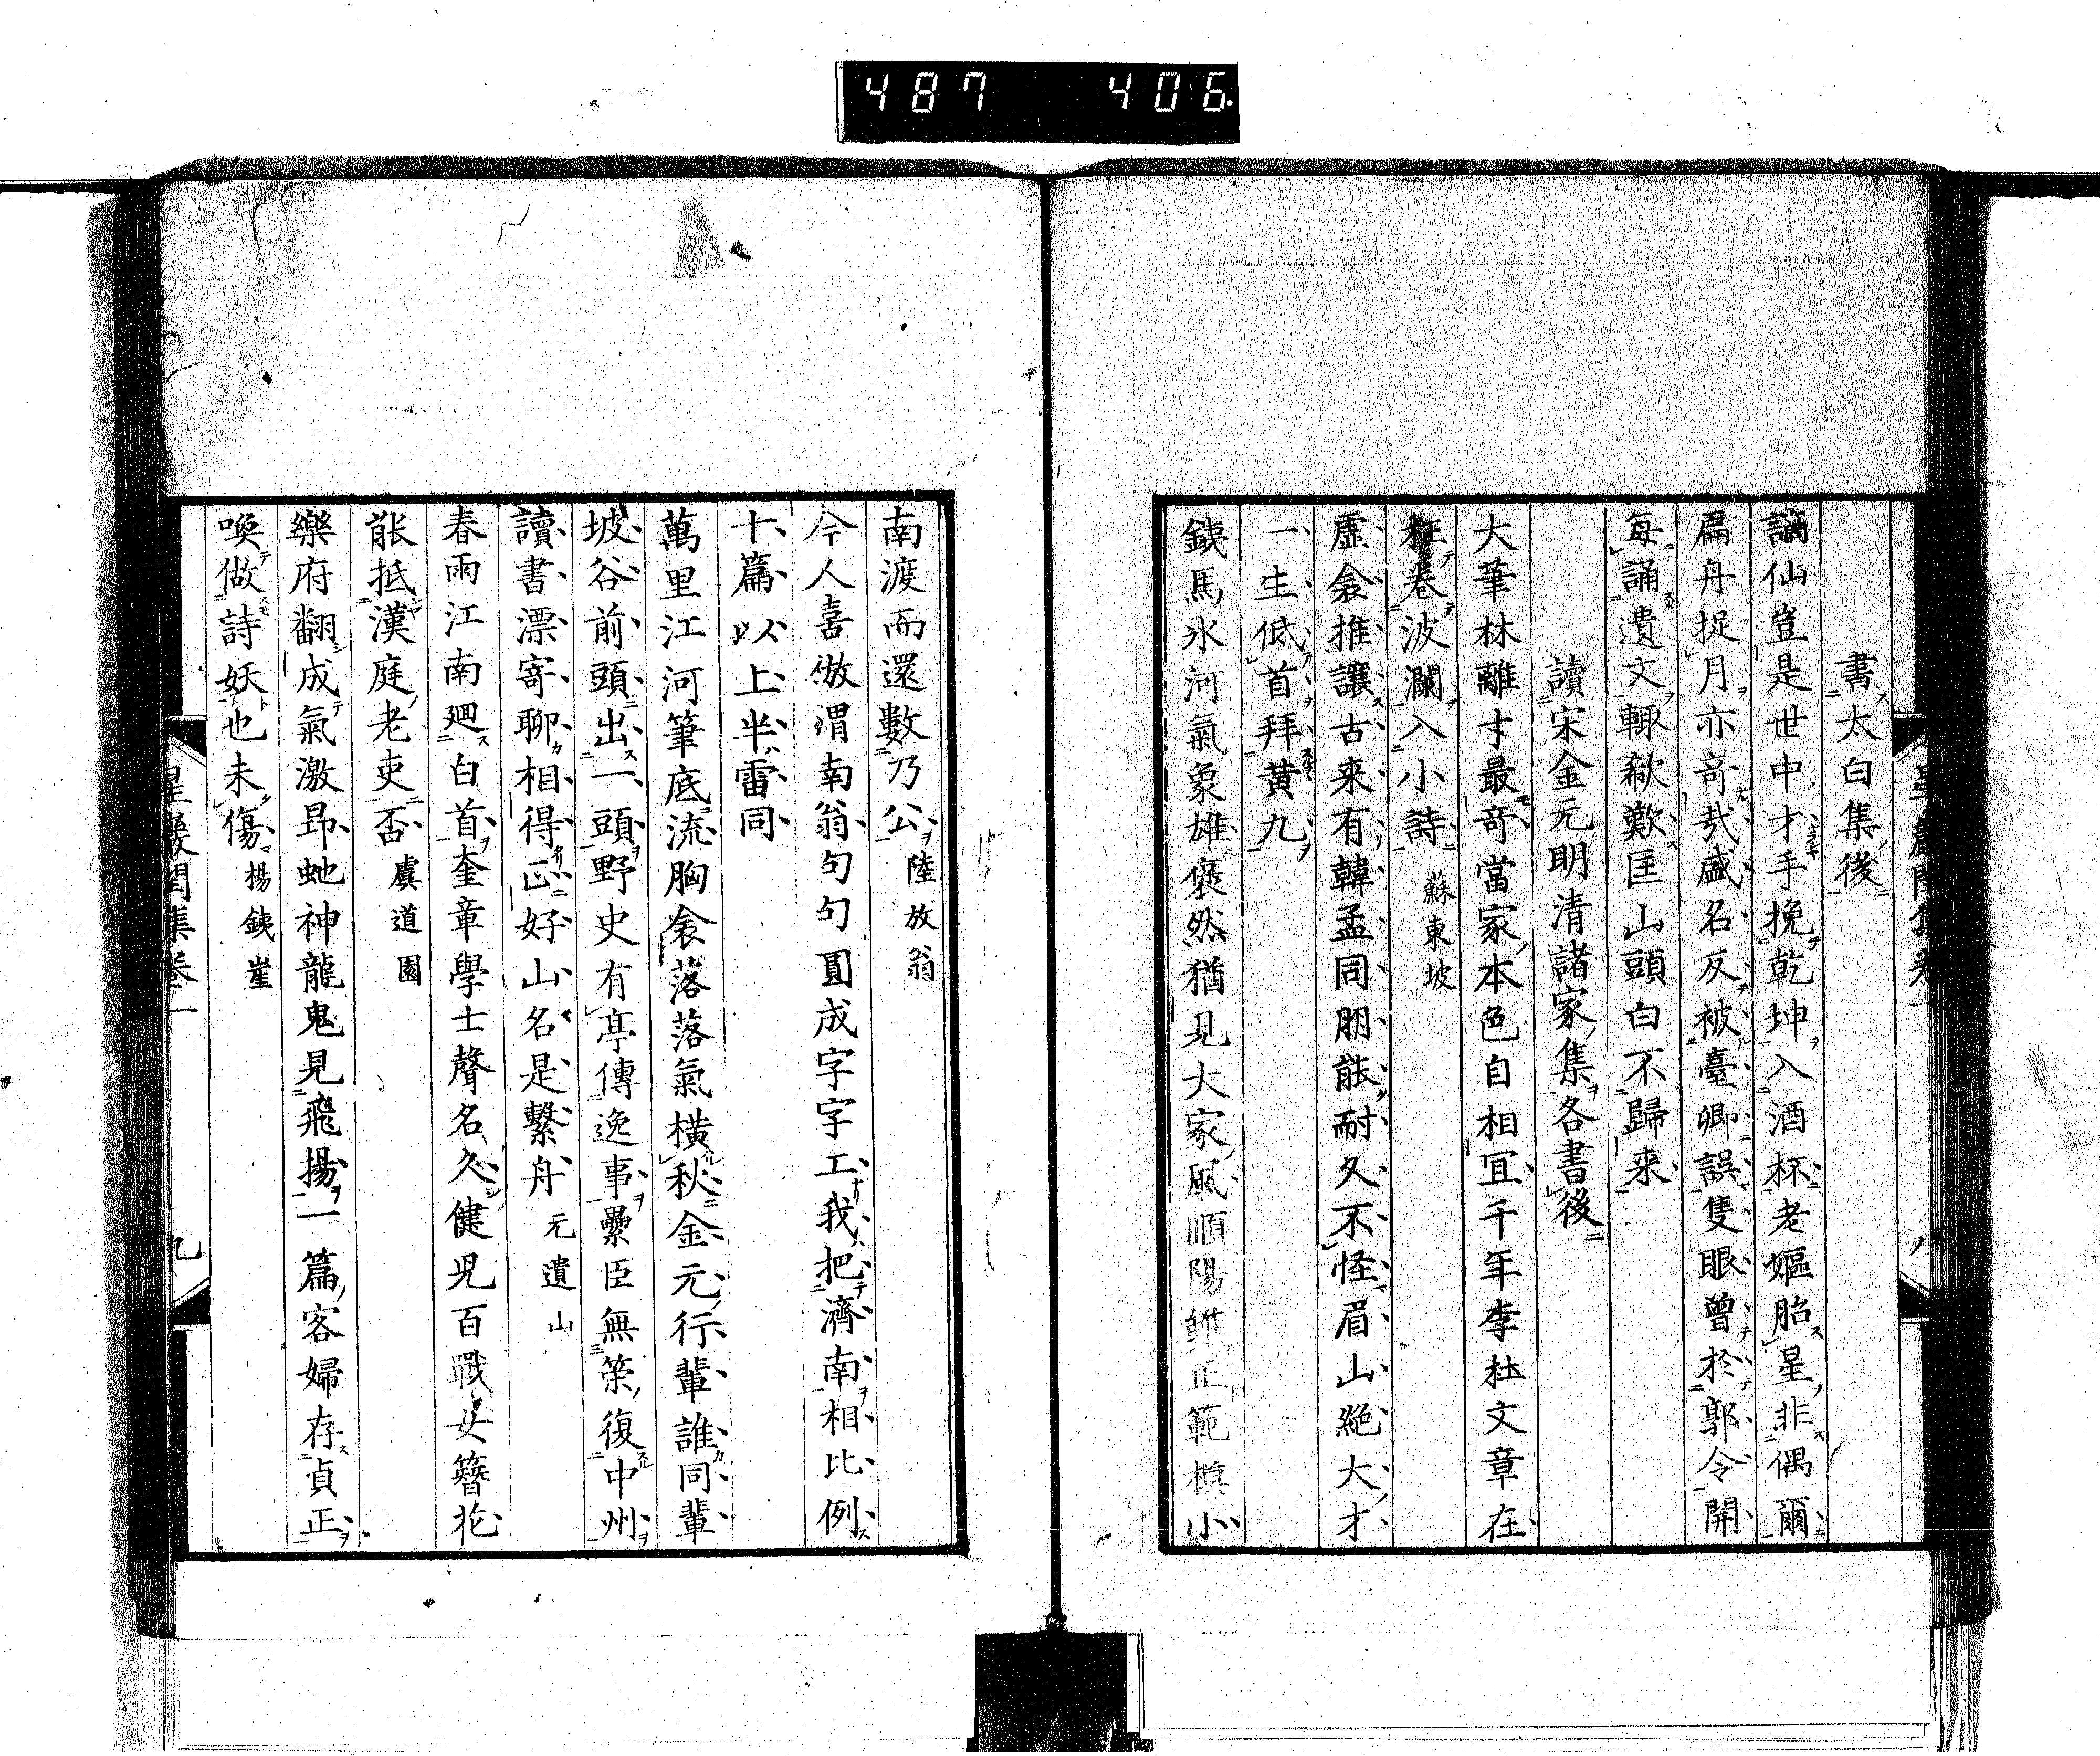 487 406
書太白集後
謫仙豈是世中才手挽乾坤入酒杯老嫗胎星非偶爾
扁舟捉月亦奇哉盛名反被臺卿誤隻眼曾於郭令開
每誦遺文輙欷歎匡山頭白不歸来
讀宋金元明清諸家集各書後
大筆林離才最奇當家本色自相宜千年李杜文章在
枉卷波瀾入小詩 蘇東坡
虛衾推讓古来有韓孟同朋能耐久不怪眉山絕大才
一生低首拜黃九
鐵馬氷河氣象雄褒然猶見大家風順陽鮮正範模小
南渡而還數乃公 陸放翁
今人喜倣渭南翁句句圓成字字工我把濟南相比例
十篇以上半雷同
萬里江河筆底流胸衾落落氣橫秋金元行輩誰同輩
坡谷前頭出一頭野史有亭傳逸事纍臣無策復中州
讀書漂寄聊相得正好山名是繫舟 元遺山
春雨江南廻白首奎章學士聲名久健児百戰女簪花
能抵漢庭老吏否 虞道園
樂府翻成氣激昂虵神龍鬼見飛揚一篇客婦存貞正
喚做詩妖也未傷 楊鐵崖
星巖閏集卷一
九